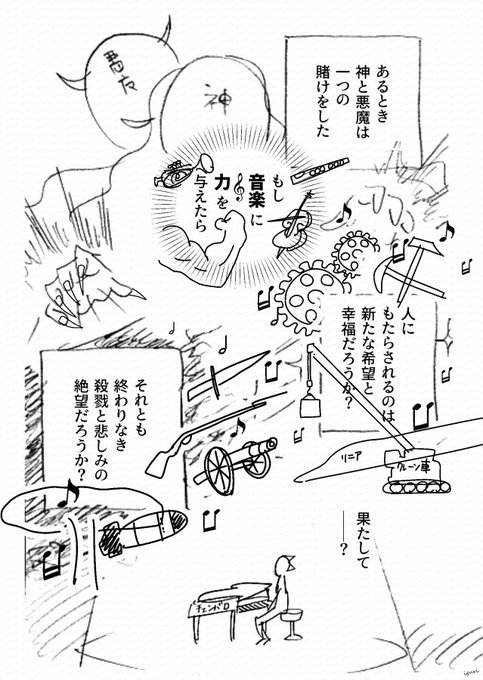 あるとき
神と悪魔は
一つの
賭けをした
悪友
神
もし
音楽に
力を
与えたら
人に
もたらされるのは
新たな希望と
幸福だろうか?
それとも
終わりなき
殺戮と悲しみの
絶望だろうか?
リニア
クレーン車
果たして
――?
チェンバロ